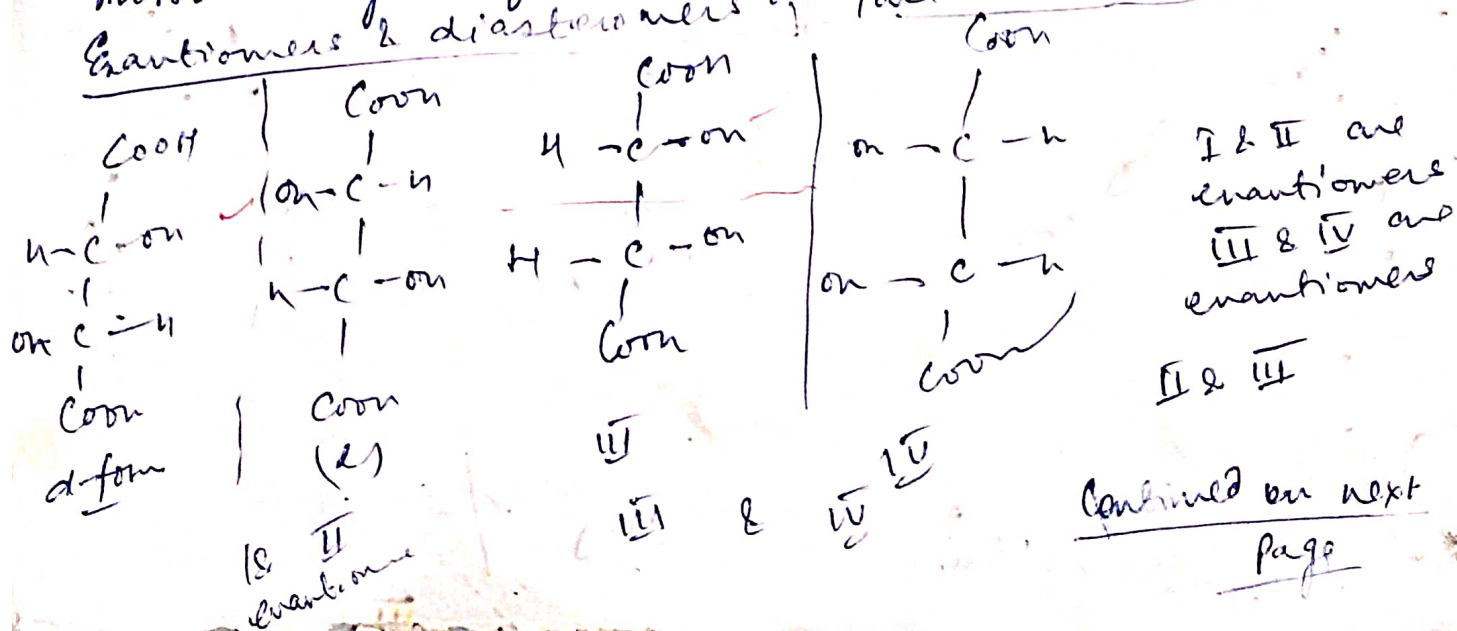 Enantiomers & diasteriomers of
COOH
H-C-OH
OH-C-H
COOH
d-form
COOH
OH-C-H
H-C-OH
COOH
(2)
I & II
enantiome
COOH
H-C-OH
H-C-OH
COOH
III
III & IV
COOH
OH-C-H
OH-C-H
COOH
IV
I & II are
enantiomers
III & IV are
enantiomers
II & III
Continued on next
page